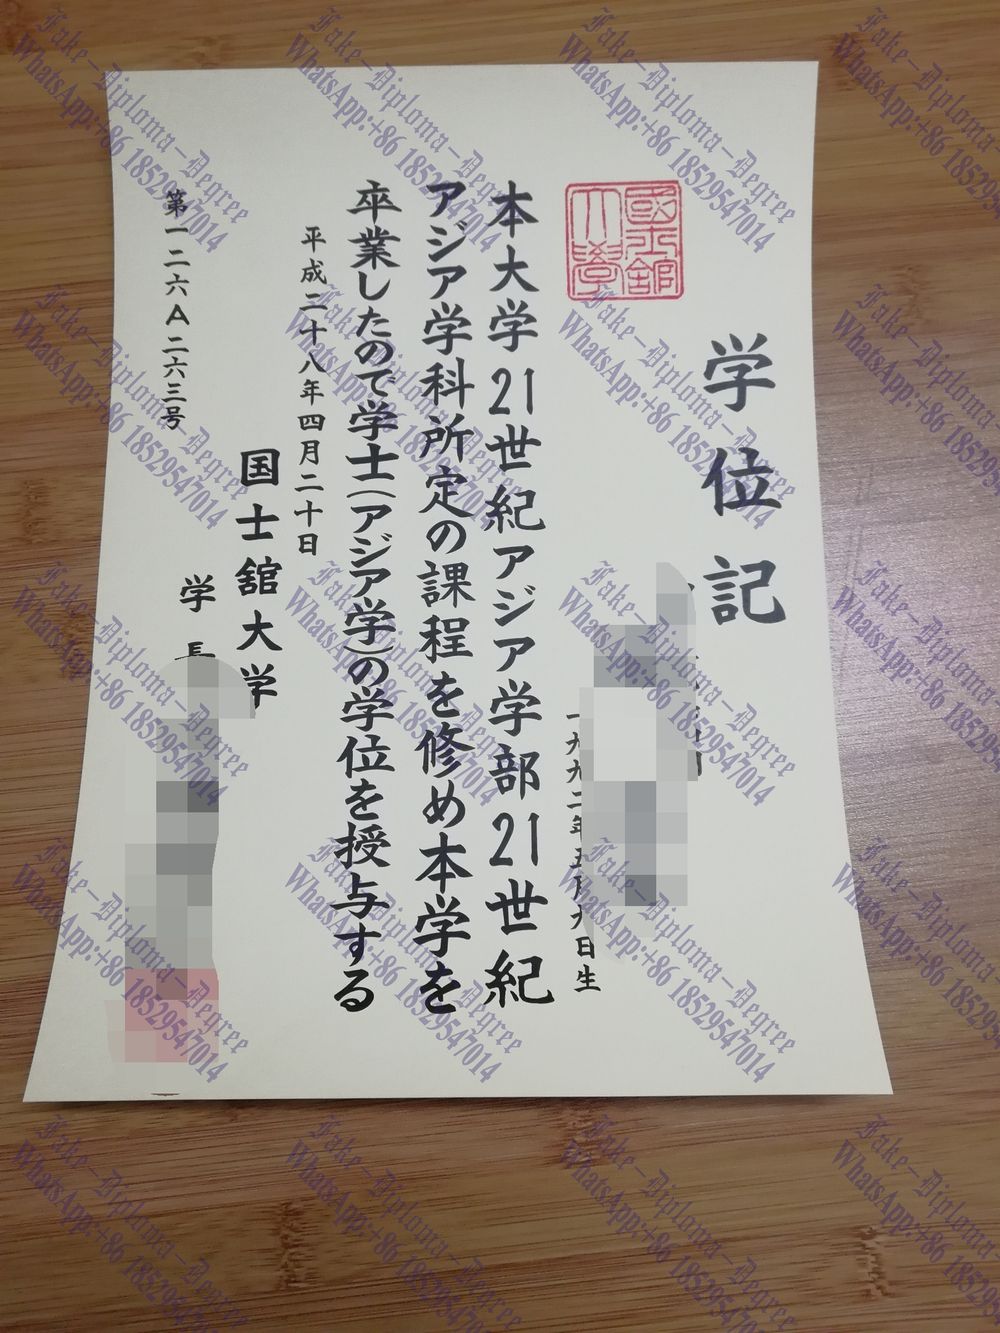 学位記
國士舘大學
一九九二年五月九日生
本大学21世紀アジア学部21世紀
アジア学科所定の課程を修め本学を
卒業したので学士(アジア学)の学位を授与する
平成二十八年四月二十日
国士舘大学
学長
第一二六A二六三号
Fake-Diploma-Degree
WhatsApp:+86 18529547014